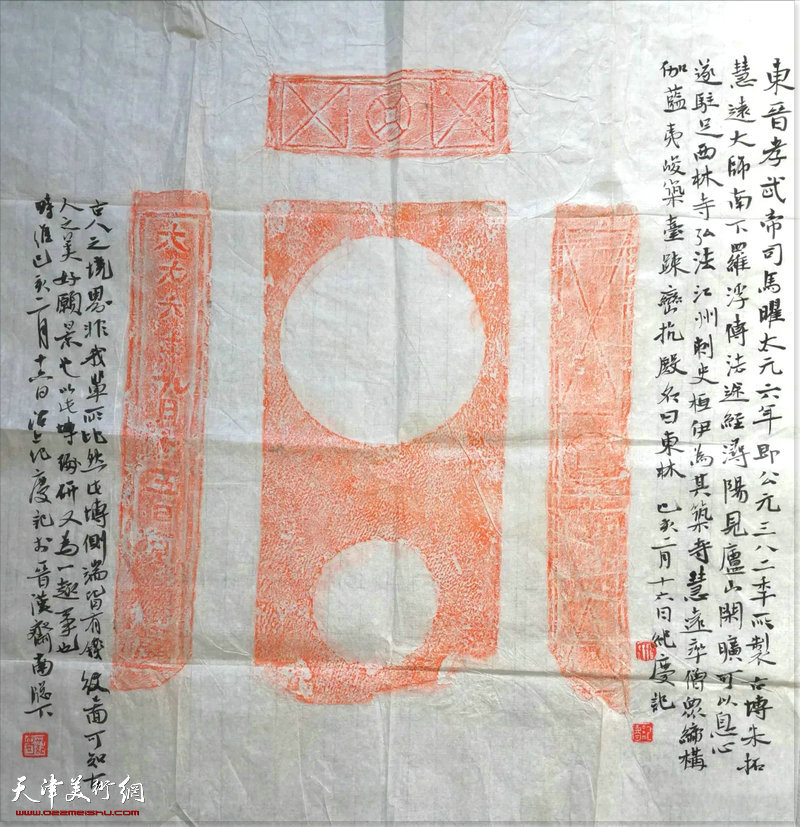 東晉孝武帝司馬曜太元六年即公元三八二年所製古塼朱拓
慧遠大師南下羅浮傳法途經潯陽見廬山閑曠可以息心
遂駐足西林寺弘法江州刺史桓伊為其築寺慧遠率僧眾締構
伽藍夷峻築臺疎巒抗殿名曰東林 己亥二月十六日 慶記
太元六年九月 五日
古人之境界非我輩所比然此塼側端皆有錢紋上面可知古
人之美好願景也以此塼 研又為一趣事也
時維己亥二月十六日沽上 慶記於晉漢齋南 下
天津美術網
www.022meishu.com